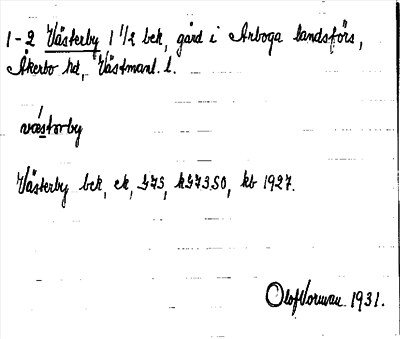 1-2 Västerby 1 1/2 bek, gård i Arboga landsförs,
Åkerbo hd, Västmanl. l.
væstorby
Västerby bek, ek, GJS, kGJ350, kb 1927.
Olof Vorman 1931.